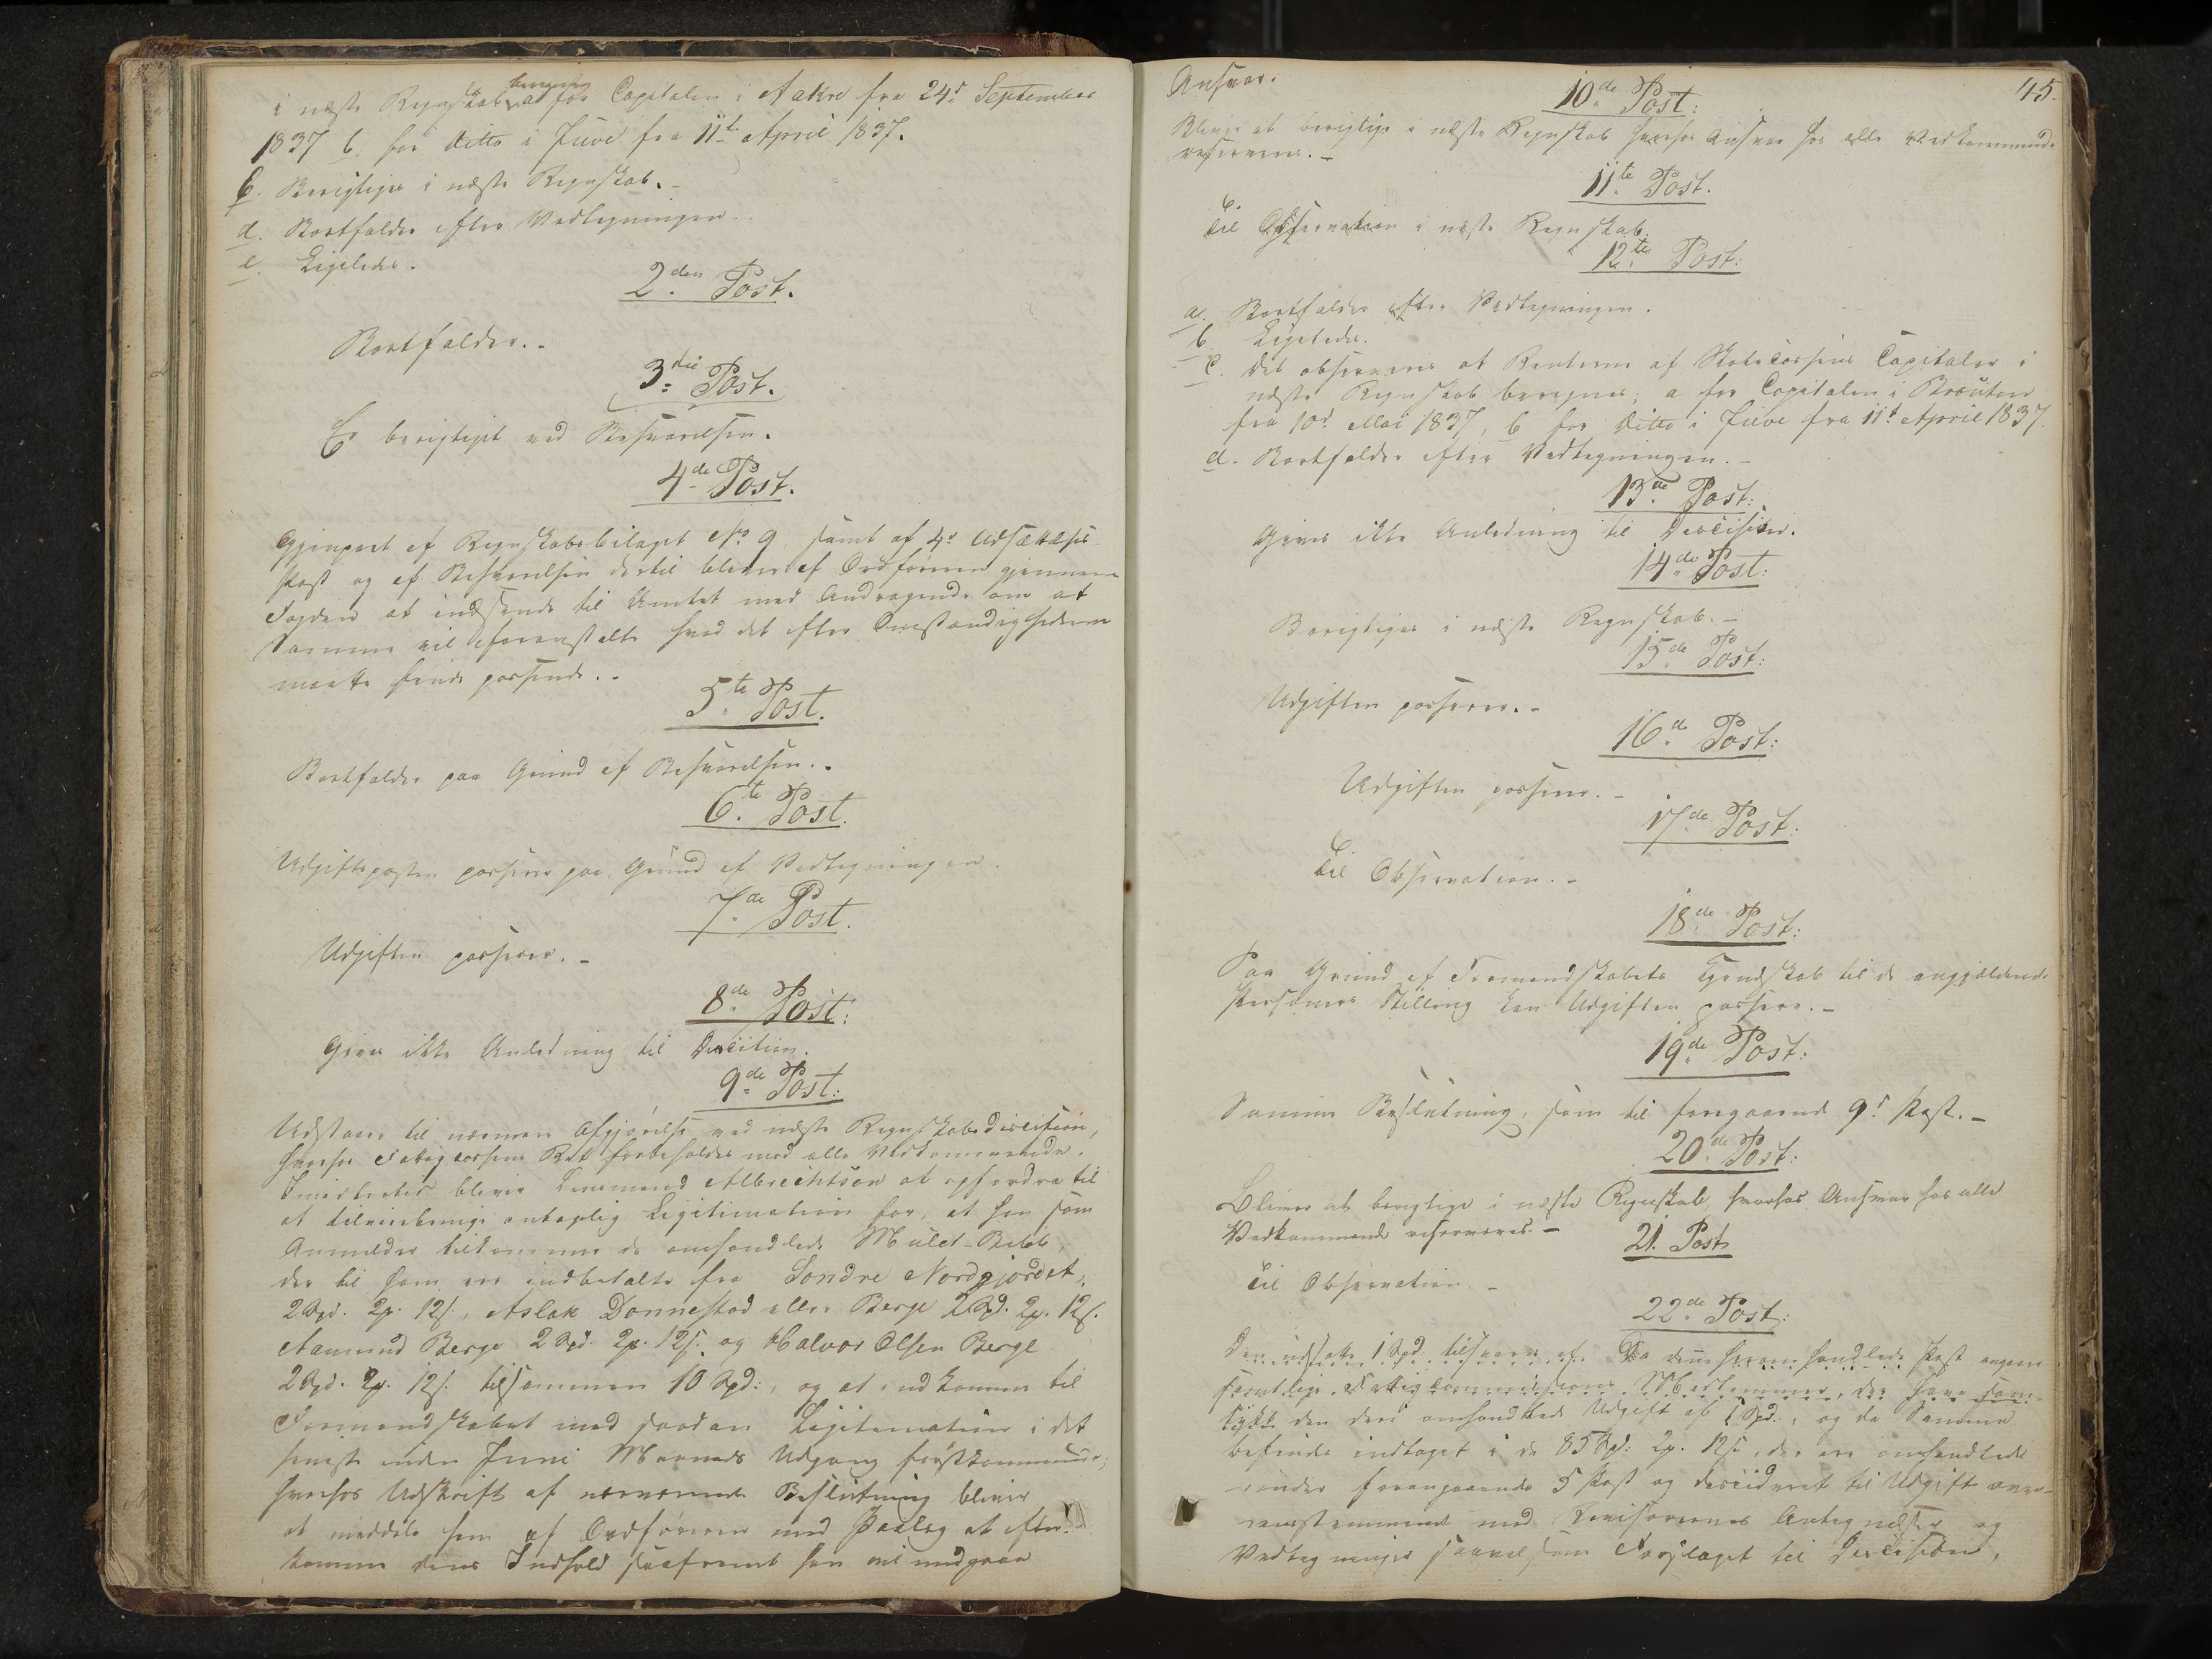 beregnes
i næste Regnskab a for Capitalen i Aakre fra 24d September
1837 b. for Ditto i Juve fra 11t April 1837.
c. Berigtiges i næste Regnskab.
d. Bortfalder efter Vedtegningen.
e. Ligeledes.
2den Post.
Bortfalder.
3die Post.
Er berigtiget ved Besvarelsen.
4de Post.
Gjenpart af Regnskabsbilaget No 9 samt af 4de Udsættelses
Post og af Besvarelsen dertil bliver af Ordføreren gjennem
Fogden at indsende til Amtet med Andragende om at
Samme vil foranstalte hvad det efter Omstændighederne
maatte finde passende.
5te Post.
Bortfalder paa Grund af Besvarelsen.
6te Post.
Udgiftsposten passerer paa Grund af Vedtegningen.
7de Post.
Udgiften passerer.
8de Post:
Giver ikke Anledning til Decision.
9de Post:
Udstaaer til nærmere Afgjørelse ved næste Regnskabsdecision,
hvorhos Fattigcassens Ret forbeholdes mod alle Vedkommende.
Imidlertid bliver Lensmand Albrechtson at opfordre til
at tilveiebringe antagelig Legitimation for, at han som
Anmelder tilkommer de omhandlede Mulct-Beløb,
der til ham ere indbetalte fra Sondre Nordgjordet,
2 Spd. 2 12 s., Aslak Donnestad eller Berge 2 Spd. 2 12 s.
Aamund Berge 2 Spd. 2 12 s. og Halvor Olsen Berge
2 Spd. 2 12 s. tilsammen 10 Spd:, og at indkomme til
Formandskabet med saadan Legitimation i det
seneste inden Juni Maaneds Udgang førstkommende;
hvorhos Udskrift af nærværende Beslutning bliver
at meddele ham af Ordføreren med Paalæg at efter-
komme dens Indhold saafremt han vil undgaae
45.
Ansvar.
10de Post:
Bliver at berigtige i næste Regnskab hvorhos Ansvar hos alle Vedkommende
reserveres.
11te Post.
Til Observation i næste Regnskab.
12te Post:
a. Bortfalder efter Vedtegningen.
b. Ligeledes.
c. Det observeres at Renterne af Skolecassens Capitaler i
næste Regnskab beregnes; a for Capitalen i Brouten
fra 10d Mai 1837, b for Ditto i Juve fra 11t April 1837.
d. Bortfalder efter Vedtegningen.
13de Post:
Giver ikke Anledning til Decision.
14de Post:
Berigtiges i næste Regnskab.
15de Post:
Udgiften passerer.
16de Post:
Udgiften passerer.
17de Post:
Til Observation.
18de Post:
Paa Grund af Formandskabets Kjendskab til de angjældende
Personers Stilling kan Udgiften passere.
19de Post:
Samme Beslutning, som til foregaaende 9d Post.
20de Post:
Bliver at berigtige i næste Regnskab, hvorhos Ansvar hos alle
Vedkommende reserveres.
21. Post
Til Observation.
22de Post:
Den udsatte 1 Spd. tilsvares af. Da den heromhandlede Post angaaer
samtlige Fattigcommissions Medlemmer, der have sam-
tykt den deri omhandlede Udgift af 1 Spd:, og da Samme
befindes indtaget i de 85 Spd: 2 12 s, der ere omhandlede
under foregaaende 5 Post og decideret til Udgift over-
eensstemmende med Revisorernes Antegnelser og
Vedtegninger saavelsom Forslaget til Decision,